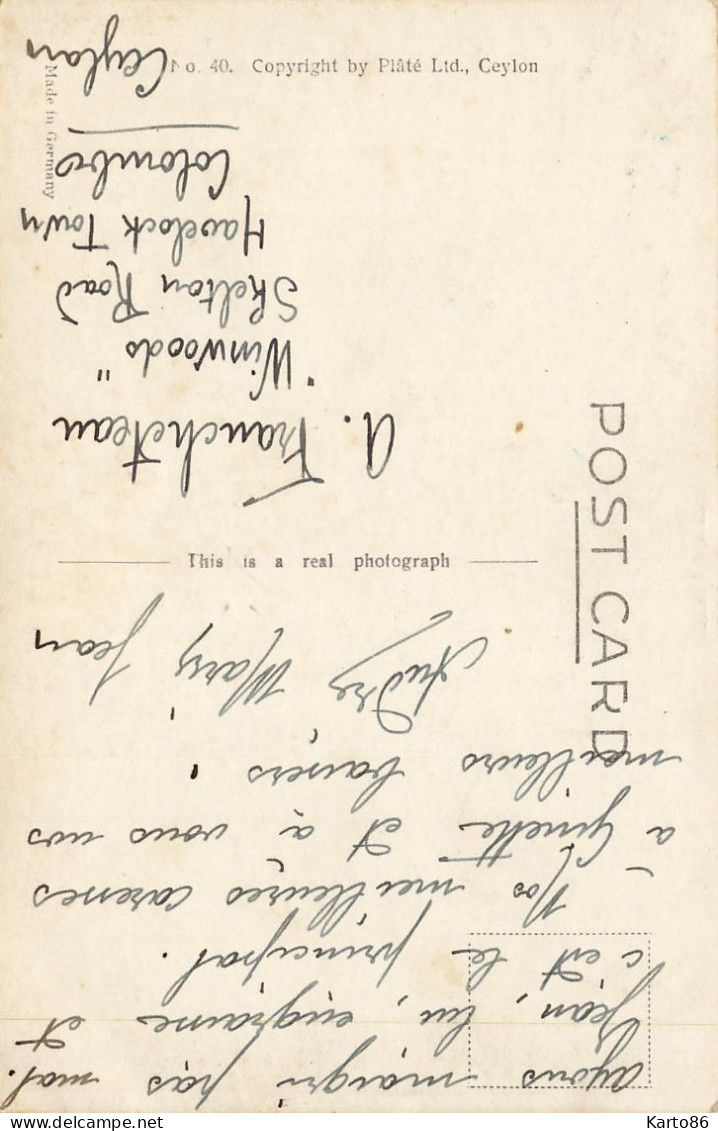 ayons maigri pas mal.
Jean, lui, engraine et
c'est le principal.
Nos meilleures caresses
à Ginette et à vous nos
meilleurs baisers !
André, Mary, Jean
This is a real photograph
A. Francheteau
"Winwoods"
Skelton Road
Havelock Town
Colombo
Ceylan
No. 40. Copyright by Plâté Ltd., Ceylon
Made in Germany
POST CARD
Karto86